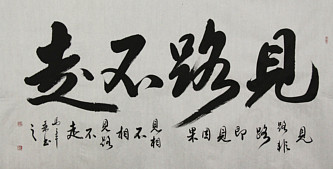 見路不走
見路非路即見因果見相不相見路不走